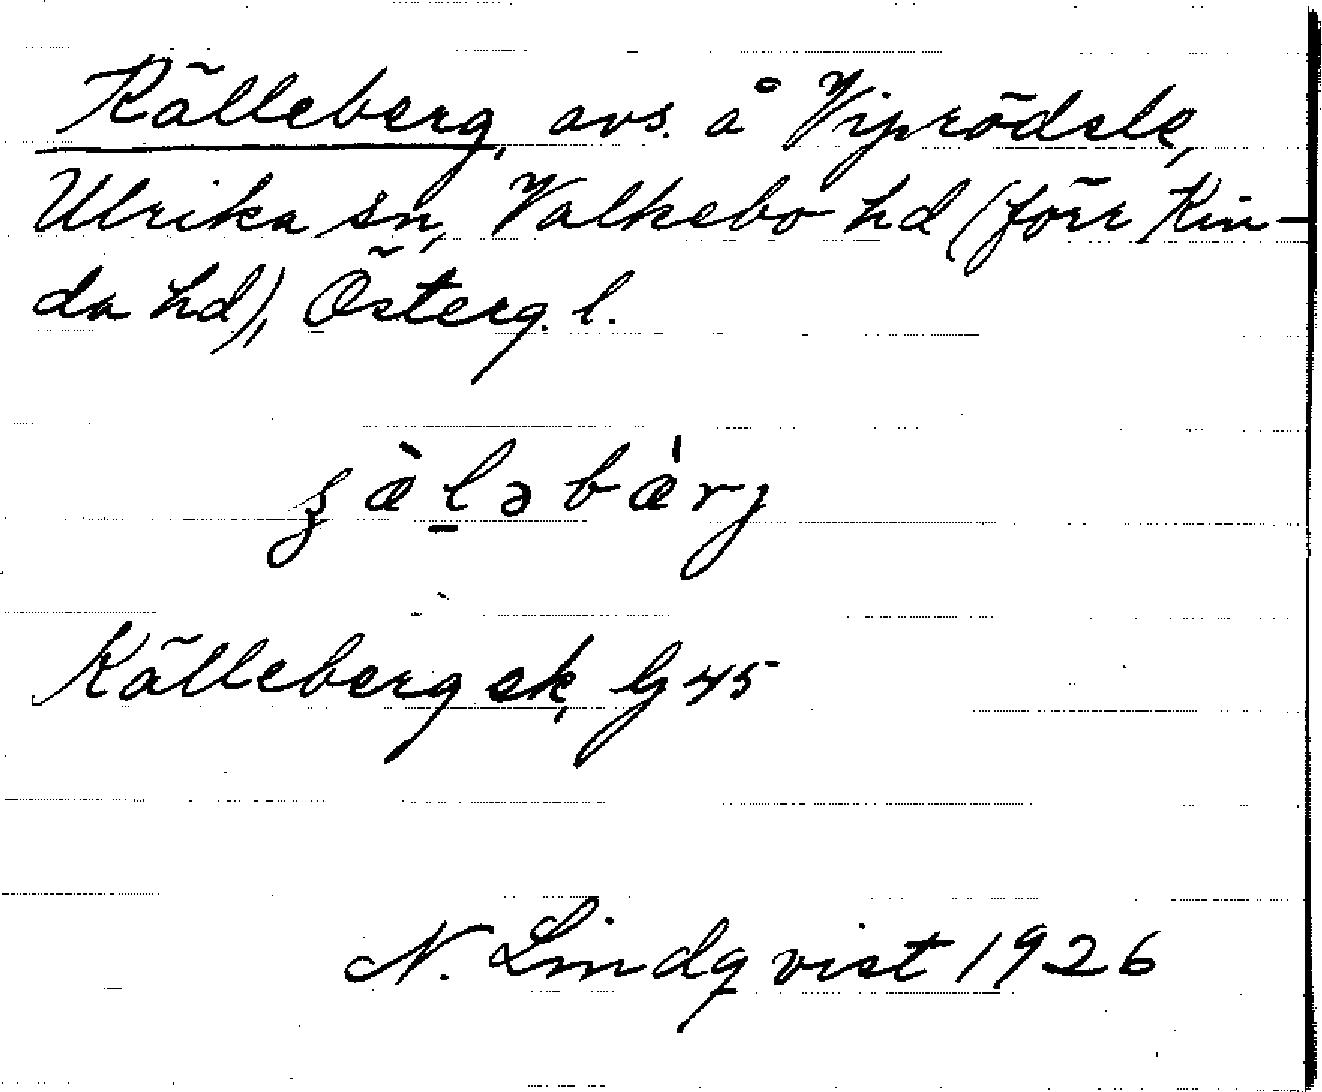 Källeberg, avs. å Viprödsle,
Ulrika sn, Valkebo hd (förr Kin-
da hd), Österg. l.
ʂæ̀l̠əbæ̍rj
Källeberg ek, G 45
N. Lindqvist 1926